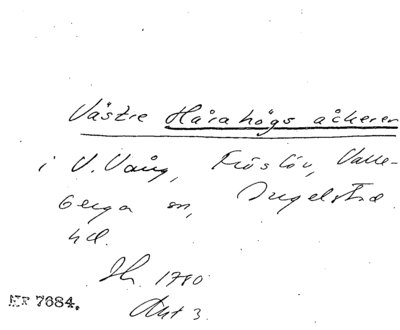 Västre Hårahögs åkeren
i V. Vång, Fröslöv, Valle-
berga sn, Ingelstad
hd.
Lm. 1780
Akt 3.
MF 7684.